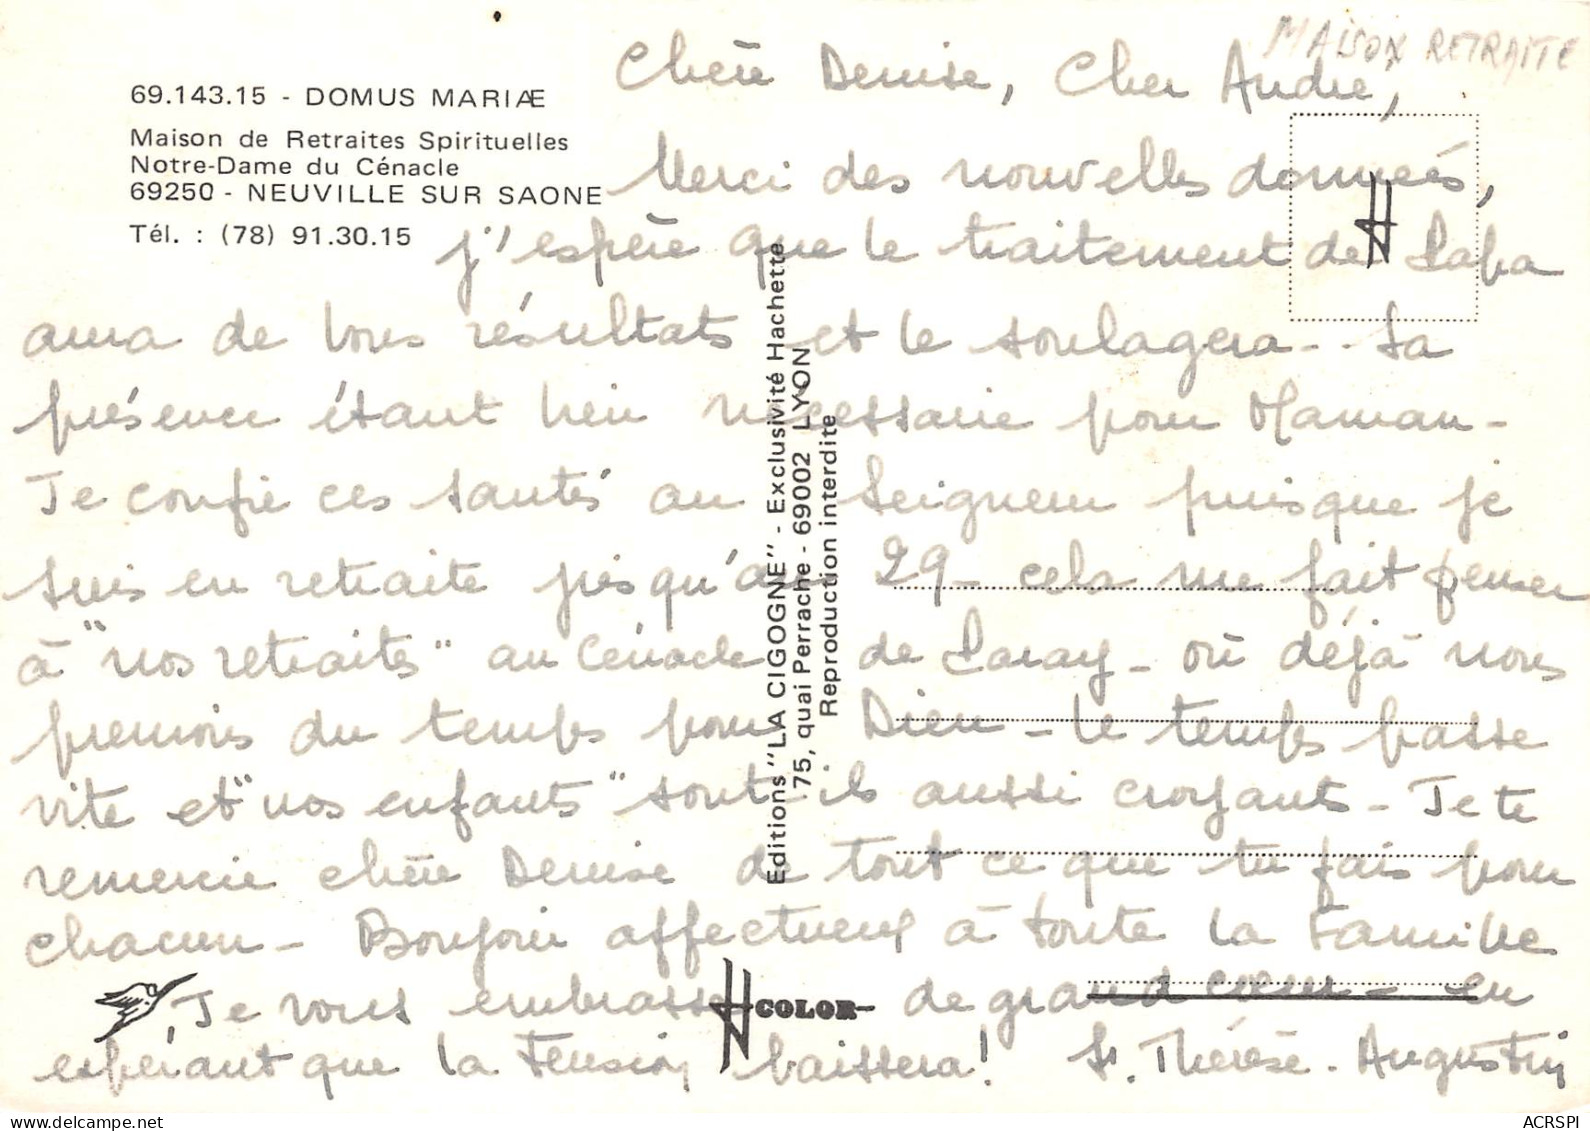 MAISON RETRAITE
69.143.15 - DOMUS MARIÆ
Maison de Retraites Spirituelles
Notre-Dame du Cénacle
69250 - NEUVILLE SUR SAONE
Tél. : (78) 91.30.15
Chère Denise, Cher André,
Merci des nouvelles données,
j'espère que le traitement de Papa
aura de bons résultats et le soulagera.. Sa
présence étant bien nécessaire pour Maman -
Je confie ces santés au Seigneur puisque je
suis en retraite jusqu'au 29 - cela me fait penser
à "nos retraites" au Cénacle de Paray - où déjà nous
prenions du temps pour Dieu - Le temps passe
vite et "nos enfants" sont-ils aussi croyants - Je te
remercie chère Denise de tout ce que tu fais pour
chacun - Bonjour affectueux à toute la Famille
Je vous embrasse de grand coeur - en
espérant que la Tension baissera! Sr. Thérèse - Augustin
Editions "LA CIGOGNE" - Exclusivité Hachette
75, quai Perrache - 69002 LYON
Reproduction interdite
COLOR
ACRSPI